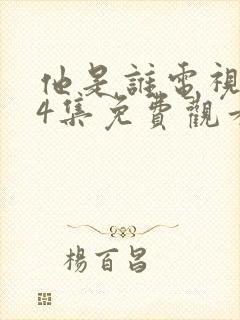 他是誰電視
4集免費觀看
楊百昌